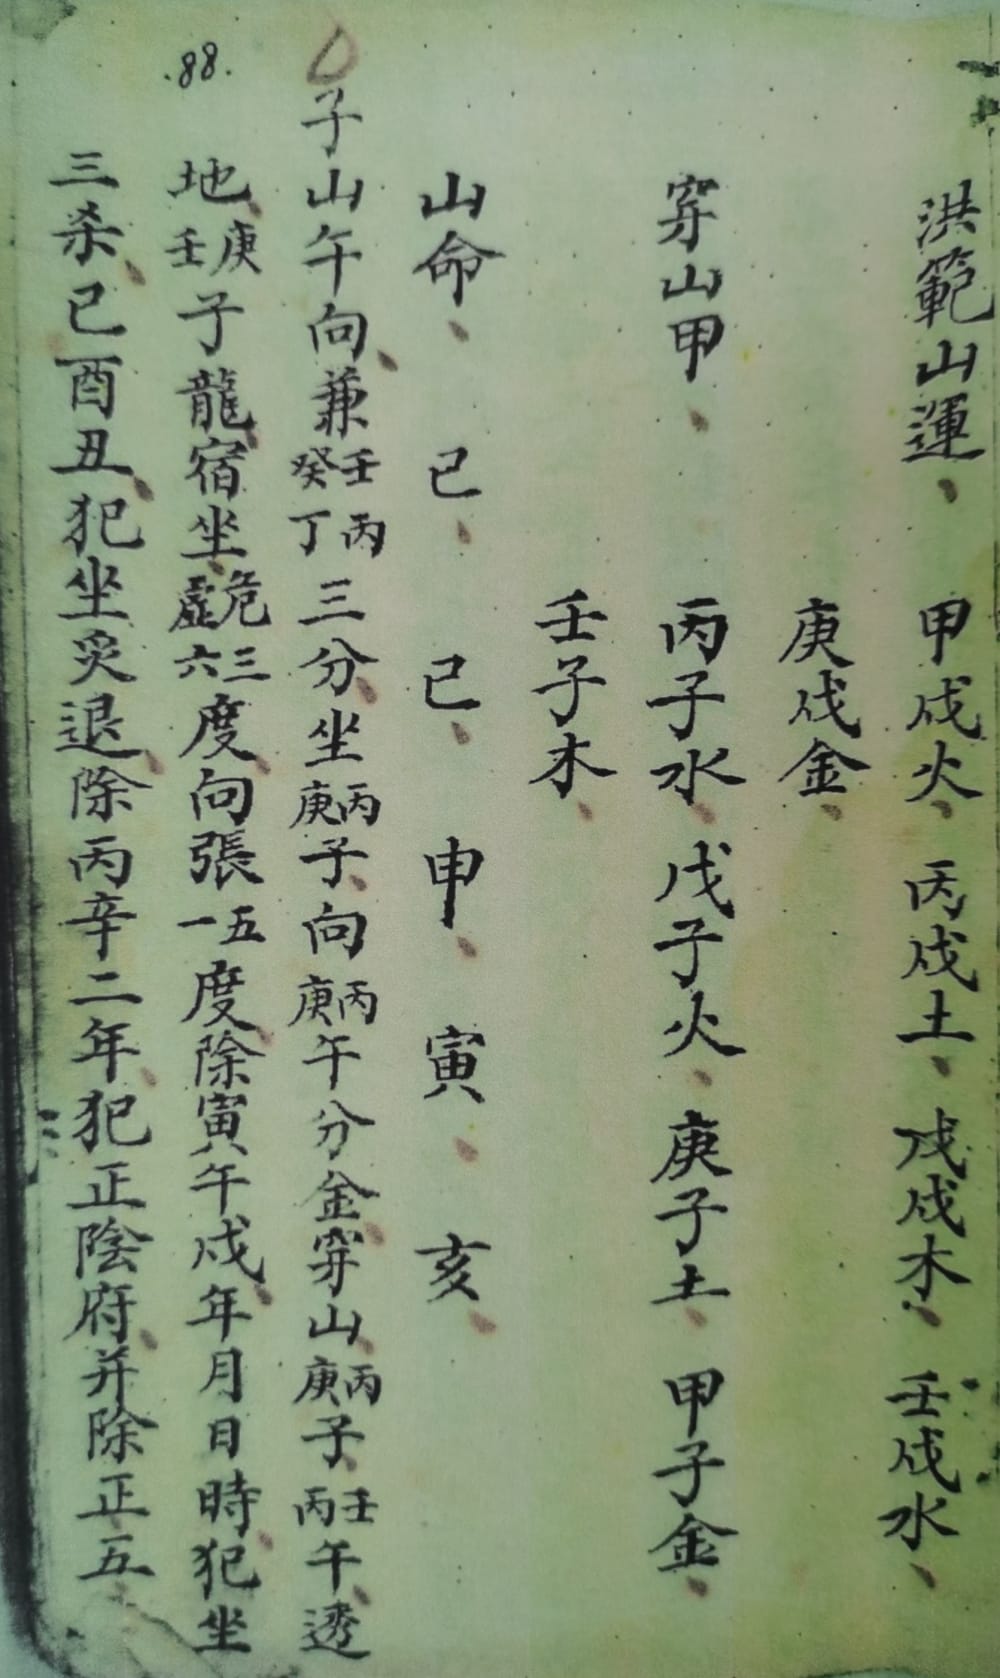 洪範山運、甲戌火、丙戌土、戊戌木、壬戌水、
庚戌金、
穿山甲、丙子水、戊子火、庚子土、甲子金、
壬子木、
山命、己、己、申、寅、亥、
子山午向、兼壬丙癸丁三分、坐丙庚子、向丙庚午分金、穿山丙庚子、壬丙午、透
88.
地、庚壬子龍、宿坐、危三虛六度、向張五一度、除寅午戌、年月日時、犯坐
三杀、已酉丑、犯坐灾退、除丙辛二年、犯正陰府、并除正五、